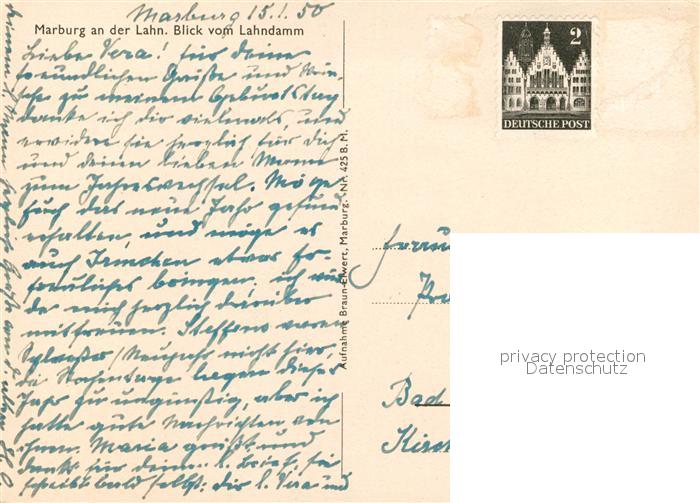 Marburg 15.1.50
Marburg an der Lahn. Blick vom Lahndamm
Liebe Vera! Für deine
freundlichen Grüße und Wün-
sche zu meinem Geburtstag
danke ich dir vielmals, und
erwidere sie herzlich für dich
und deinen lieben Mann
zum Jahreswechsel. Möge
Euch das neue Jahr gesund
erhalten, und möge es
auch Irmchen etwas Er-
freuliches bringen, ich wür-
de mich herzlich darüber
mitfreuen. Steffens waren
Sylvester/Neujahr nicht hier,
da Wochentage lagen dieses
Jahr zu ungünstig, aber ich
hatte gute Nachrichten von
ihnen. Maria grüßt und
dankt für deinen l. Brief, sie
schreibt bald selbst. Dir l. Vera und
Aufnahme Braun-Elwert, Marburg. Nr. 425 B. M.
2
DEUTSCHE POST
Frau
Bad
privacy protection
Datenschutz